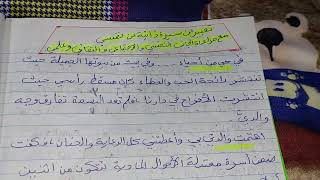 تعبير عن سيرة ذاتية عن نفسي
مع مراعاة الجانب النفسي والاجتماعي والثقافي والعلمي
في حي من أحياء .... وفي بيت من بيوتها الجميلة حيث
تنتشر رائحة الحب والعطاء كان مسقط رأسي حيث
انتشرت الأفراح في دارنا فلم تعد البسمة تفارق وجه
والديّ
اهتمت والدتي بي وأعطتني كل الرعاية والحنان، فكنت
ضمن أسرة معتدلة الأحوال المادية تتكون من اثنين